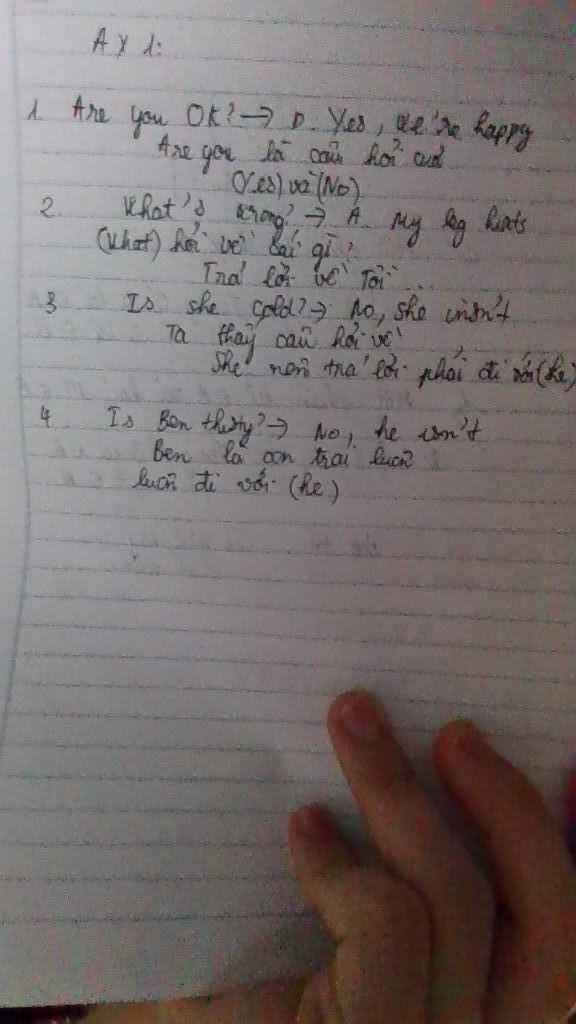 A x 1:
1 Are you OK? → D. Yes, we're happy
Are you là câu hỏi cuả
(Yes) và (No)
2 What's wrong? → A. My leg hurts
(What) hỏi về cái gì?
Trả lời về Tôi...
3 Is she cold? → No, she isn't
Ta thấy câu hỏi về
She nên trả lời phải đi với (he)
4 Is Ben thirty? → No, he isn't
Ben là con trai luôn
luôn đi với (he)